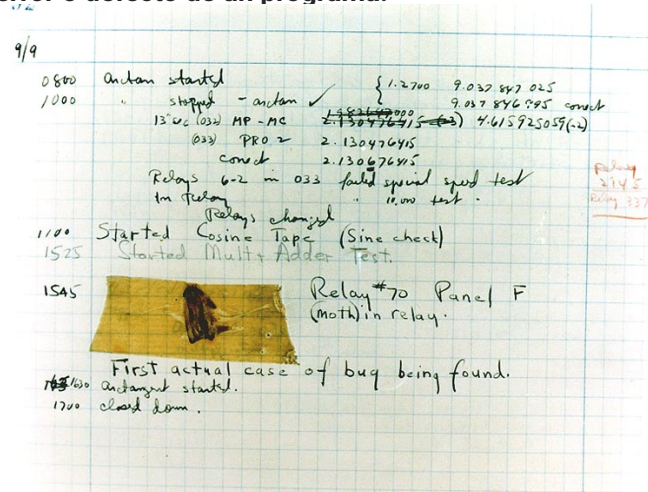 error o defecto de un programa.
9/9
0800 arctan started { 1.2700 9.037 847 025
1000 " stopped - arctan ✓ 9.037 846 995 conect
13"uc (032) MP - MC 2.130476415 4.615925059(-2)
(033) PRO 2 2.130476415
conect 2.130676415
Relays 6-2 in 033 failed special speed test
In Relay " 10,000 test.
Relays changed
Relay
2145
Relay 337
1100 Started Cosine Tape (Sine check)
1525 Started Mult+Adder Test.
1545 Relay #70 Panel F
(moth) in relay.
First actual case of bug being found.
1630 arctangent started.
1700 closed down.